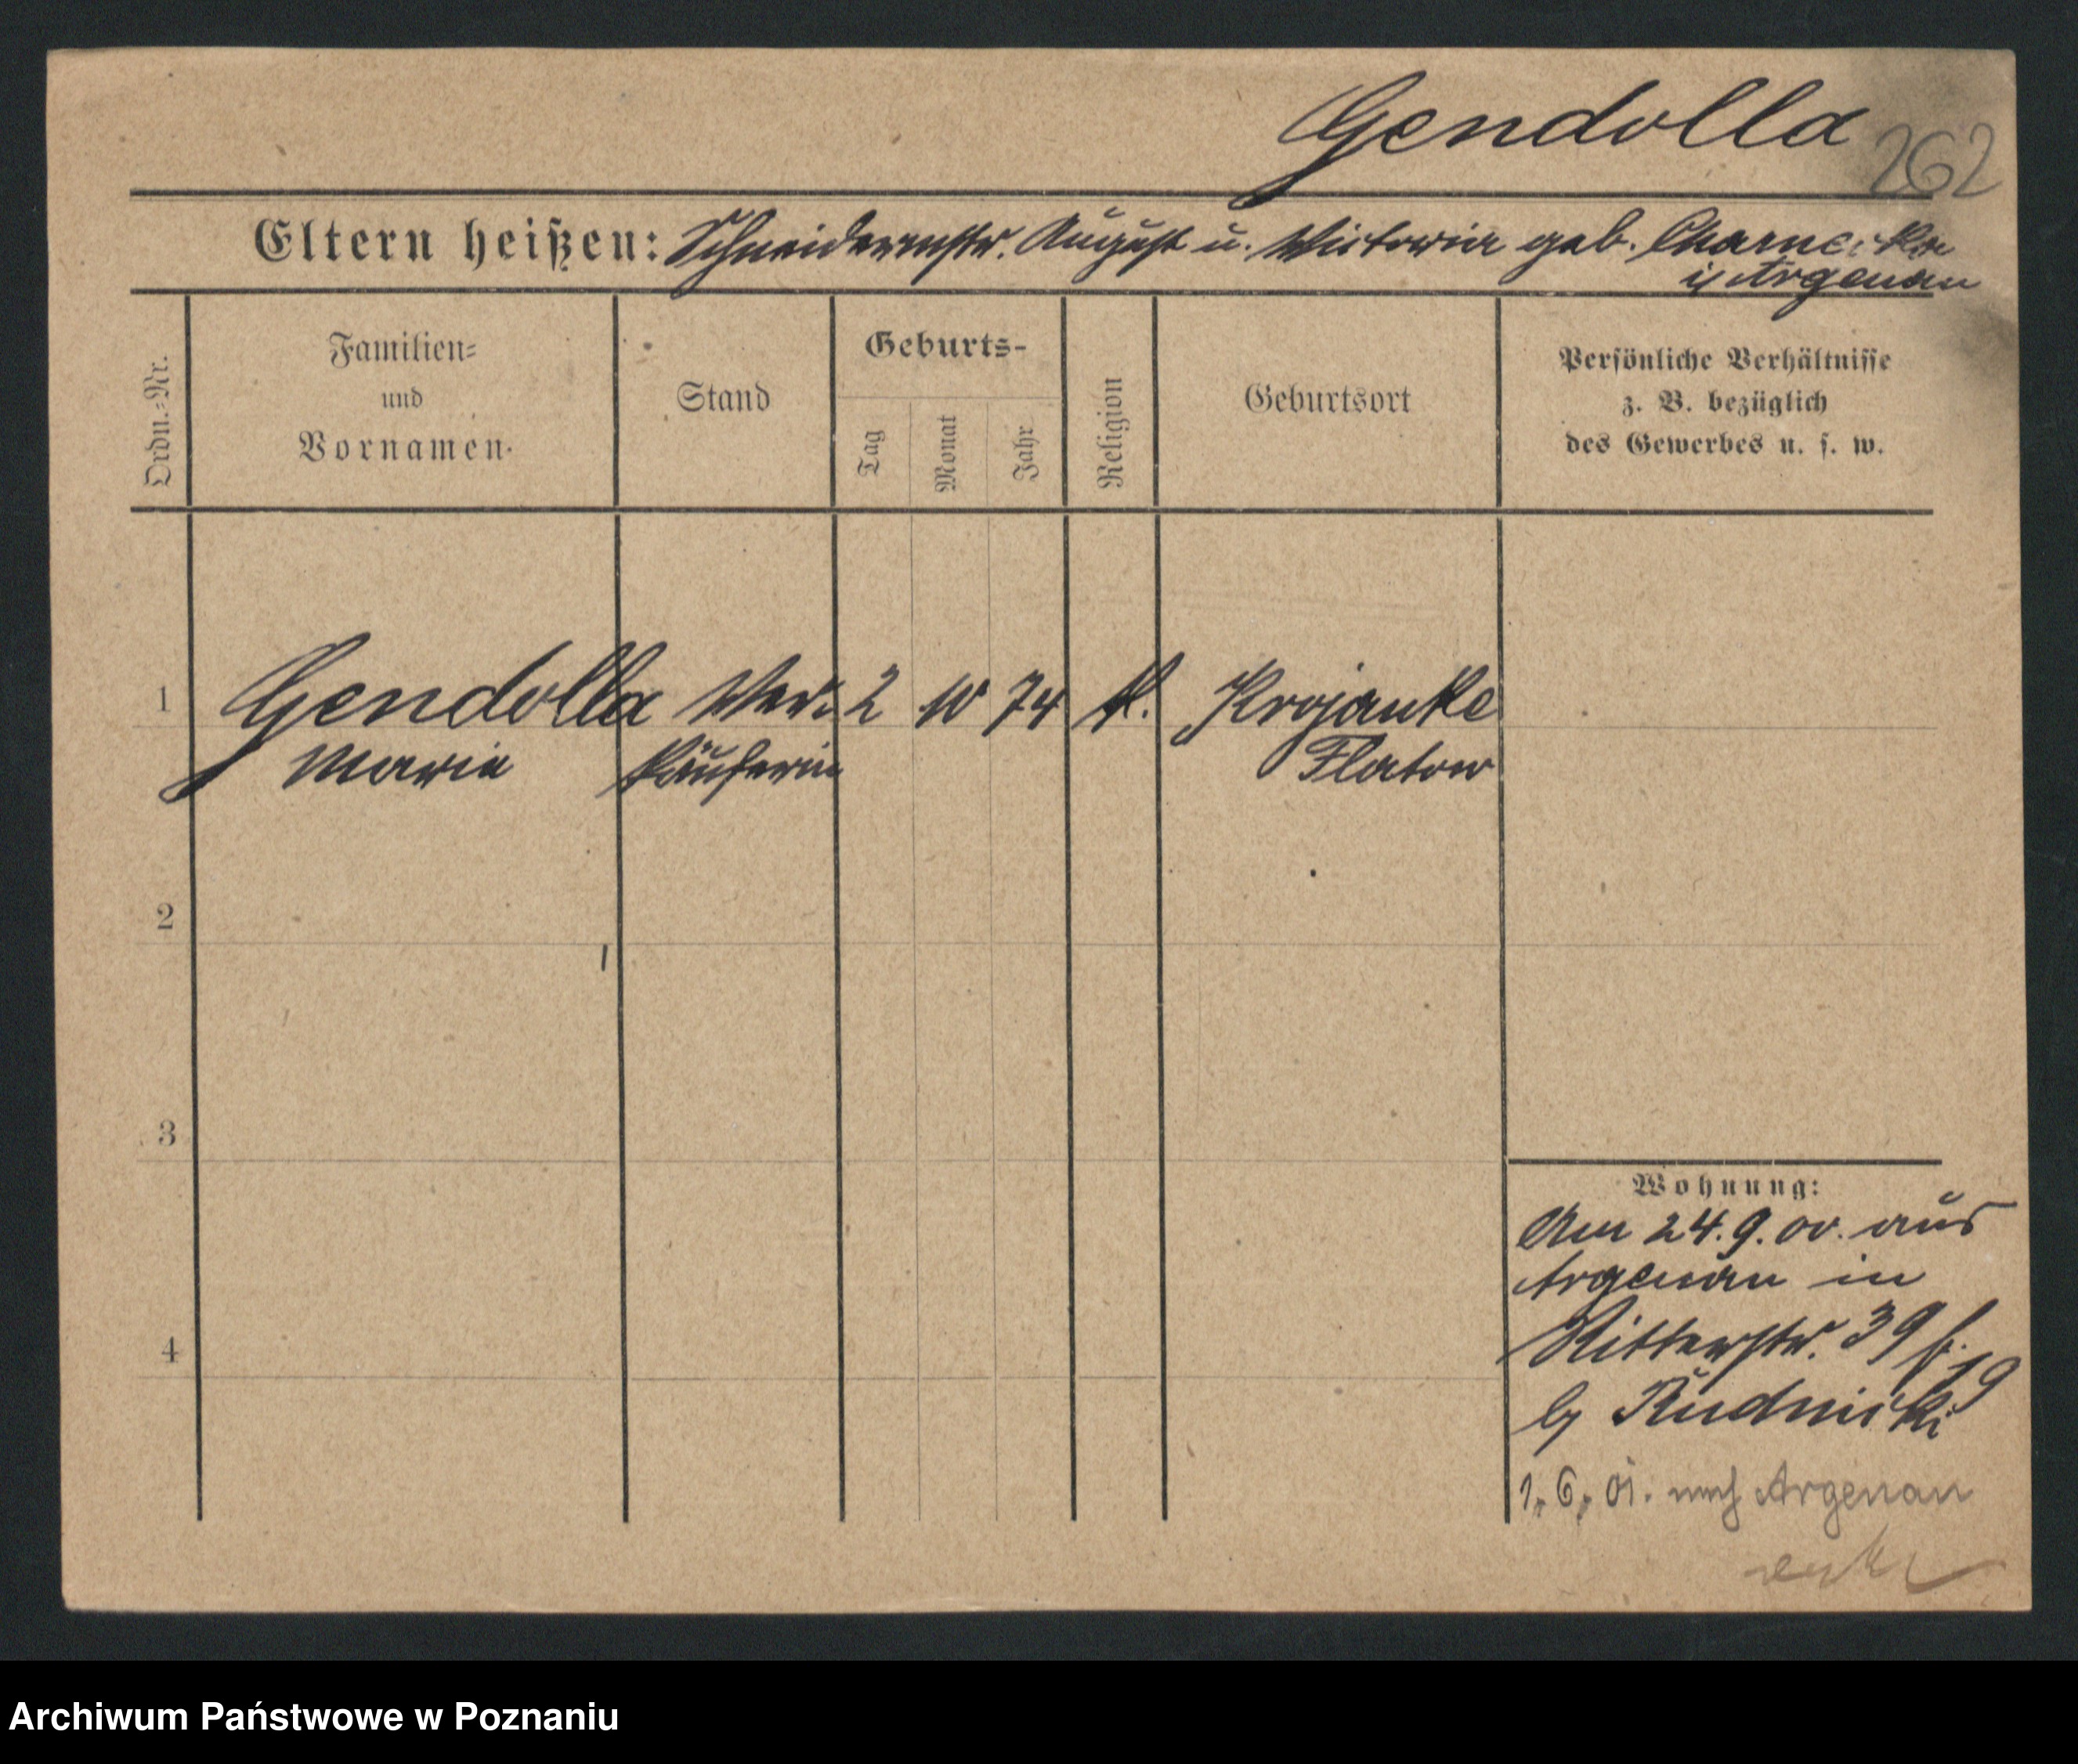 Gendolla
262
Eltern heißen: Schneidermstr. August u. Victoria geb. Charnecka
i/ Argenau
Ordn.-Nr.
Familien-
und
Vornamen.
Stand
Geburts-
Tag
Monat
Jahr
Religion
Geburtsort
Persönliche Verhältnisse
z. B. bezüglich
des Gewerbes u. s. w.
1 Gendolla Ver- 2 10 74 k. Krojanke
Maria käuferin Flatow
2
3
4
Wohnung:
Am 24.9.00. aus
Argenau in
Ritterstr. 39 f. 19
b/ Rudnicki
1. 6. 01. nach Argenau
Archiwum Państwowe w Poznaniu